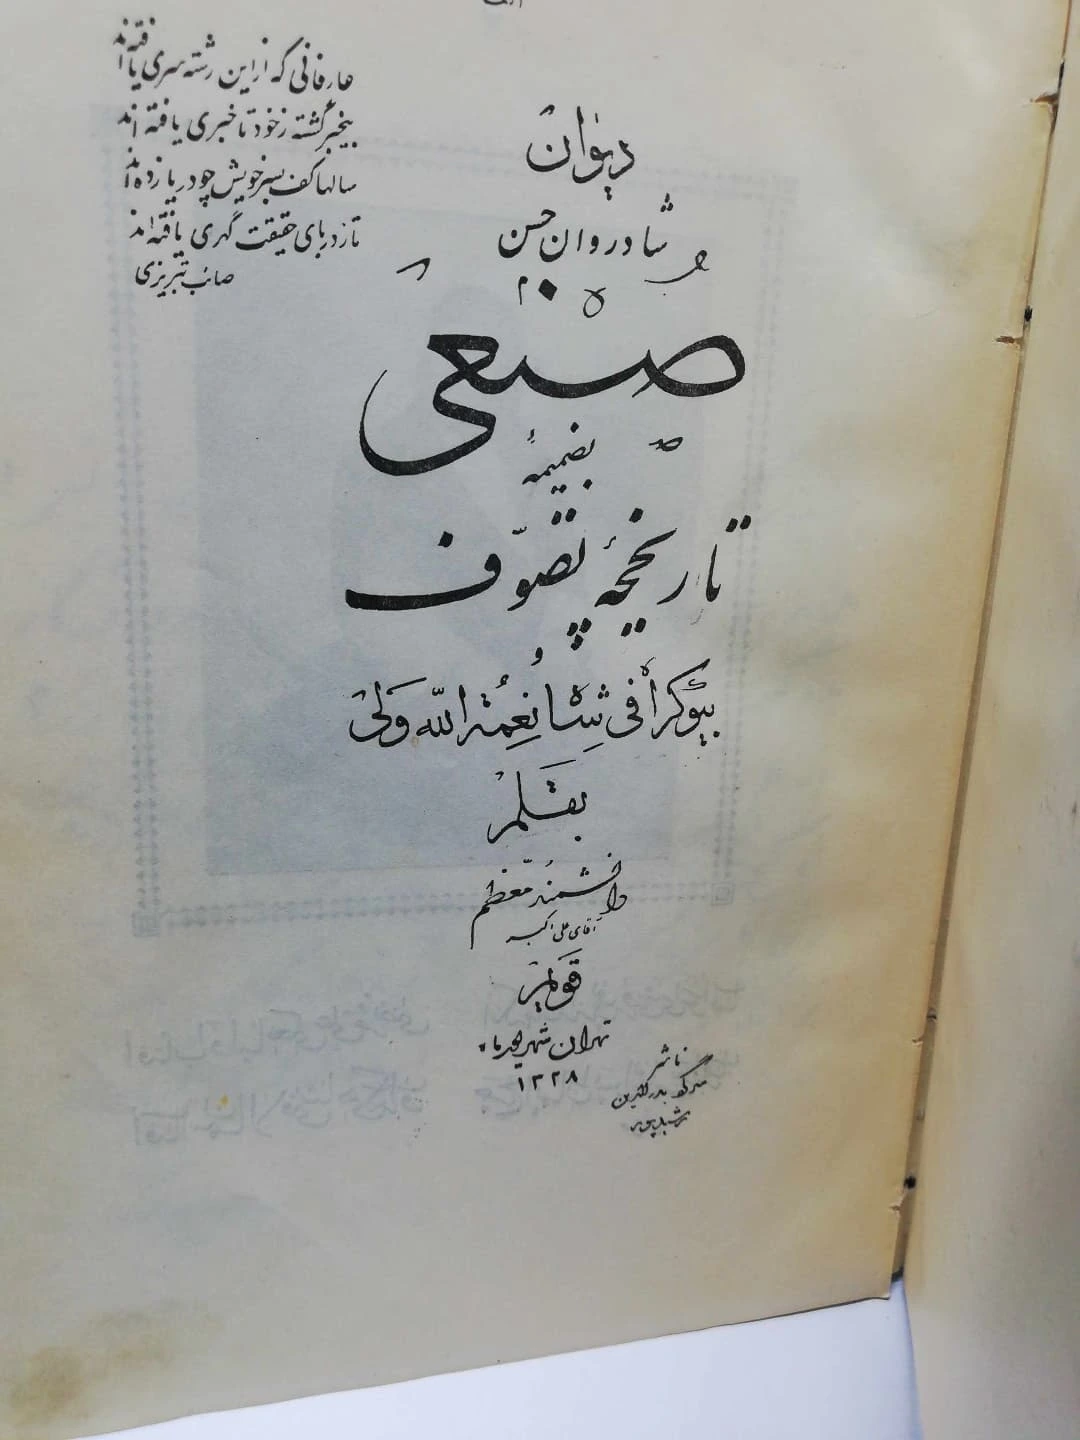 الف
عارفانی که از این رشته سری یافته‌اند
بیخبر گشته ز خود تا خبری یافته‌اند
سالها کف بسر خویش چو دریا زده‌اند
تا ز دریای حقیقت گهری یافته‌اند
صائب تبریزی
دیوان
شادروان حسن
صنیعی
بضمیمهٔ
تاریخچهٔ تصوّف
و
بیوگرافی شاه نعمة الله ولی
بقلم
دانشمند معظم
آقای علی اکبر
قویم
تهران شهریورماه
۱۳۲۸
ناشر
بدرالدین